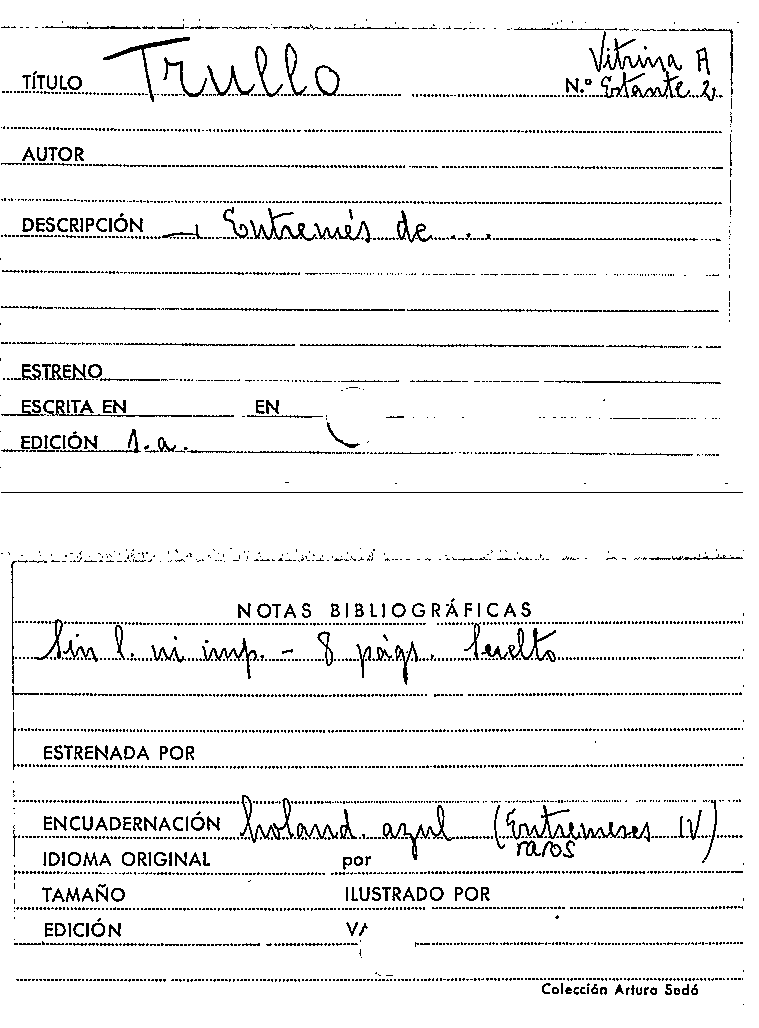 Vitrina A
TÍTULO Trullo N.º Estante 2
AUTOR
DESCRIPCIÓN —, Entremés de ...
ESTRENO
ESCRITA EN EN
EDICIÓN s.a.
NOTAS BIBLIOGRÁFICAS
Sin l. ni imp. - 8 págs. Suelto
ESTRENADA POR
ENCUADERNACIÓN holand. azul (Entremeses IV)
raros
IDIOMA ORIGINAL por
TAMAÑO ILUSTRADO POR
EDICIÓN
Colección Arturo Sedó